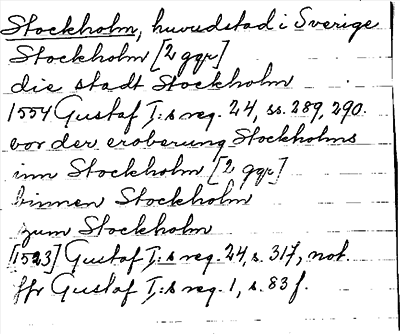 Stockholm, huvudstad i Sverige
Stockholm [2 ggr]
die stadt Stockholm
1554 Gustaf I:s reg. 24, ss. 289, 290.
vor der eroberung Stockholms
inn Stockholm [2 ggr]
binnen Stockholm
zum Stockholm
[1523] Gustaf I:s reg. 24, s. 317, not.
ffr Gustaf I:s reg. 1, s. 83 f.